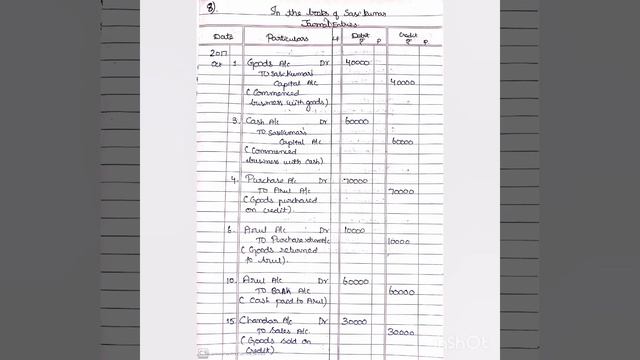 8).
In the books of Sasikumar
Journal Entries
Date Particulars L.F Debit ₹ P Credit ₹ P
2017
Oct 1. Goods A/c Dr 40000
To Sasikumar's
Capital A/c 40000
(Commenced
business with goods)
3. Cash A/c Dr 60000
To Sasikumar's
Capital A/c 60000
(Commenced
business with cash)
4. Purchase A/c Dr 70000
To Arul A/c 70000
(Goods purchased
on credit).
6. Arul A/c Dr 10000
To Purchase return A/c 10000
(Goods returned
to Arul).
10. Arul A/c Dr 60000
To Bank A/c 60000
(Cash paid to Arul)
15. Chandar A/c Dr 30000
To Sales A/c. 30000
(Goods sold on
Credit).
CS